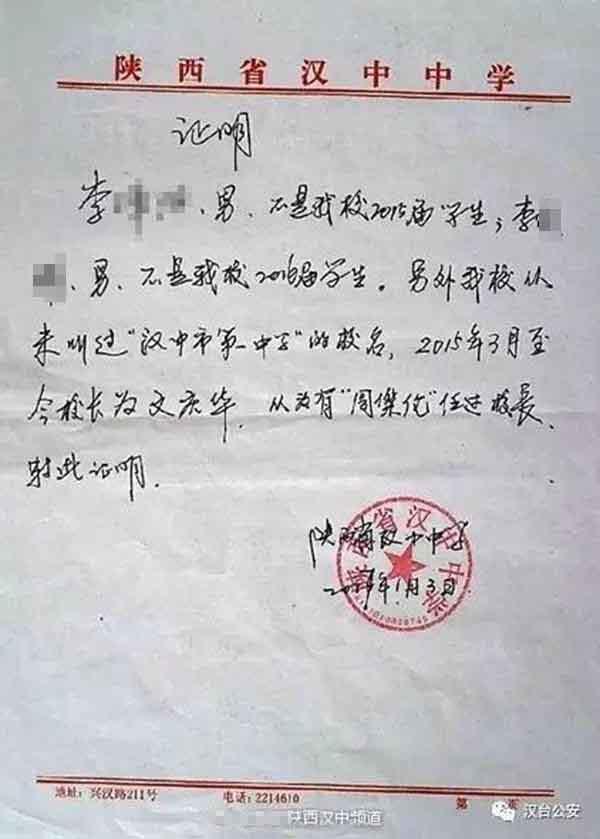 陕西省汉中中学
证明
李 、男、不是我校2015届学生；李
、男、不是我校2016届学生。另外我校从
未叫过“汉中市第一中学”的校名，2015年3月至
今校长为文庆华，从没有“周杰伦”任过校长、
特此证明．
陕西省汉中中学
年1月3日
地址：兴汉路211号 电话：2214610 第 页
陕西汉中频道
汉台公安